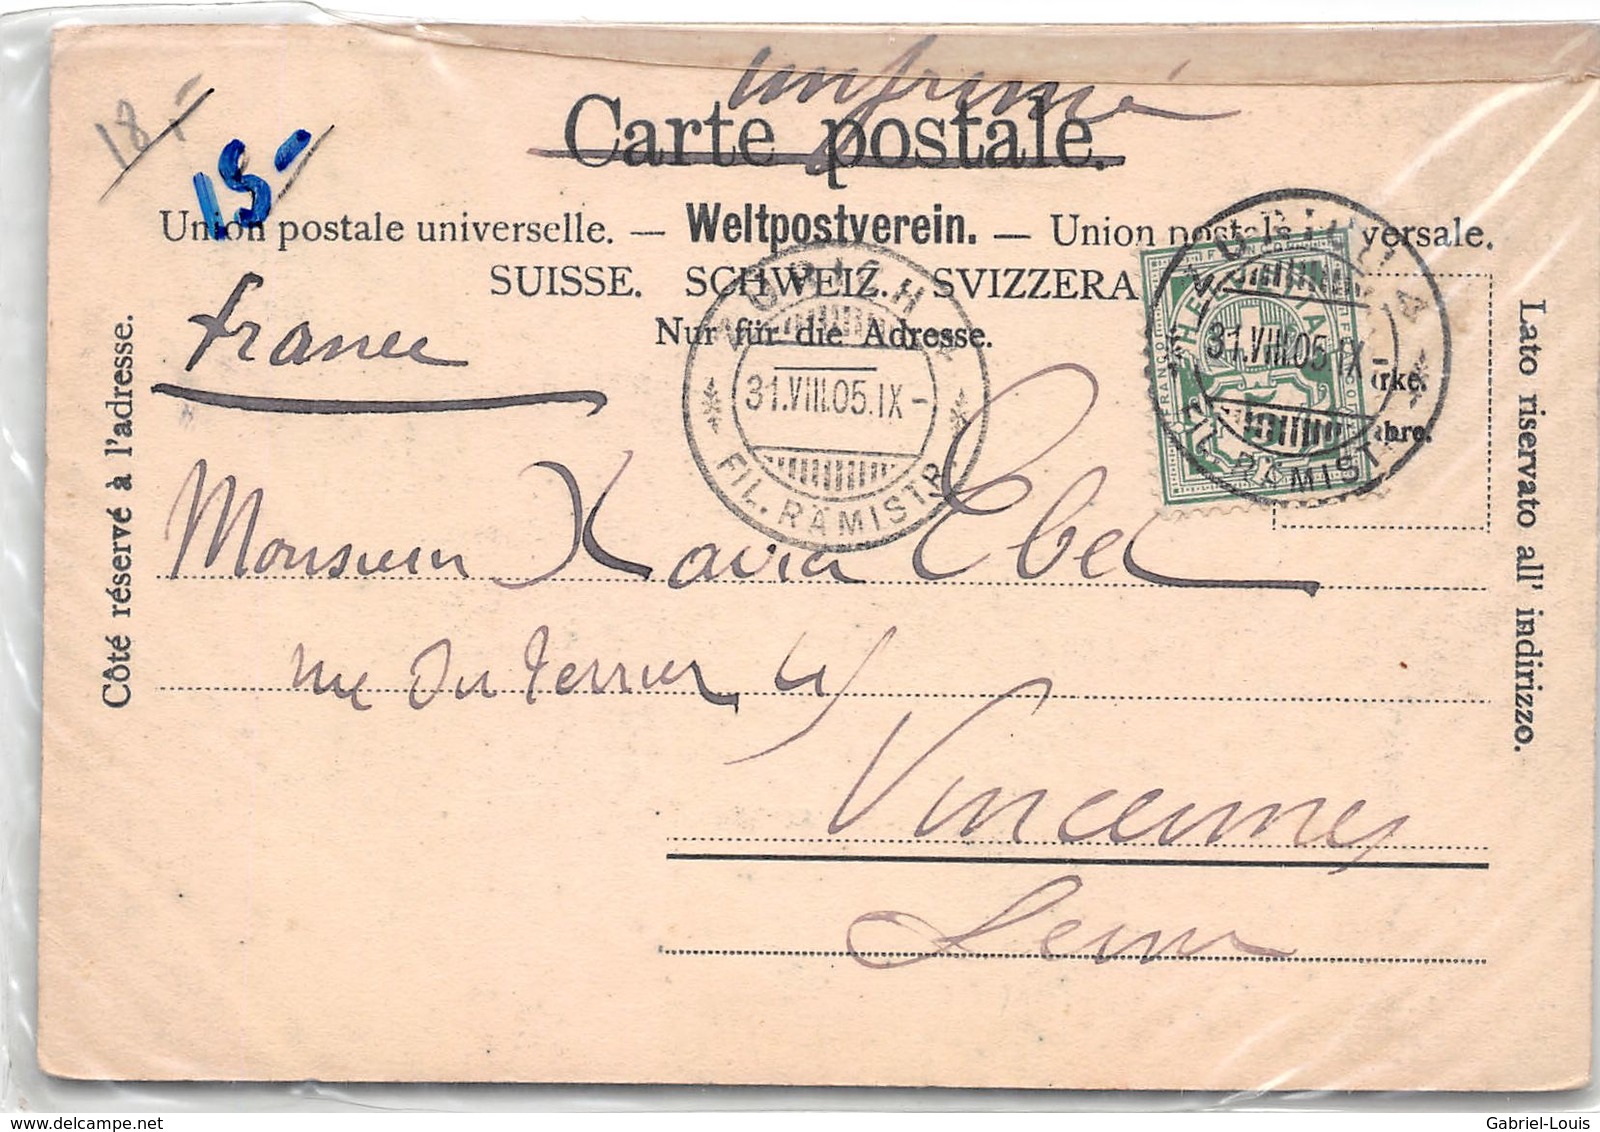 imprimé
Carte postale.
18.-
15-
Union postale universelle. — Weltpostverein. — Union postale versale.
SUISSE. SCHWEIZ. SVIZZERA
Nur für die Adresse.
France
ZÜRICH
31.VIII.05.IX-
FIL. RÄMISTR.
ZÜRICH 4
31.VIII.05.IX-
FIL. RÄMISTR.
HELVETIA
FRANCO
rke.
ahre.
Côté réservé à l'adresse.
Lato riservato all' indirizzo.
Monsieur Xavier Ebel
rue du Terrier 4
Vincennes
Seine
delcampe.net
Gabriel-Louis